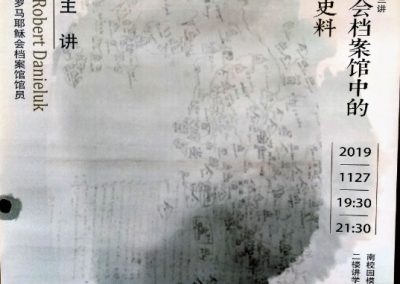 会档案馆中的
史料
2019
1127
19:30
21:30
南校园模
二楼讲学
主讲
Robert Danieluk
罗马耶稣会档案馆馆员